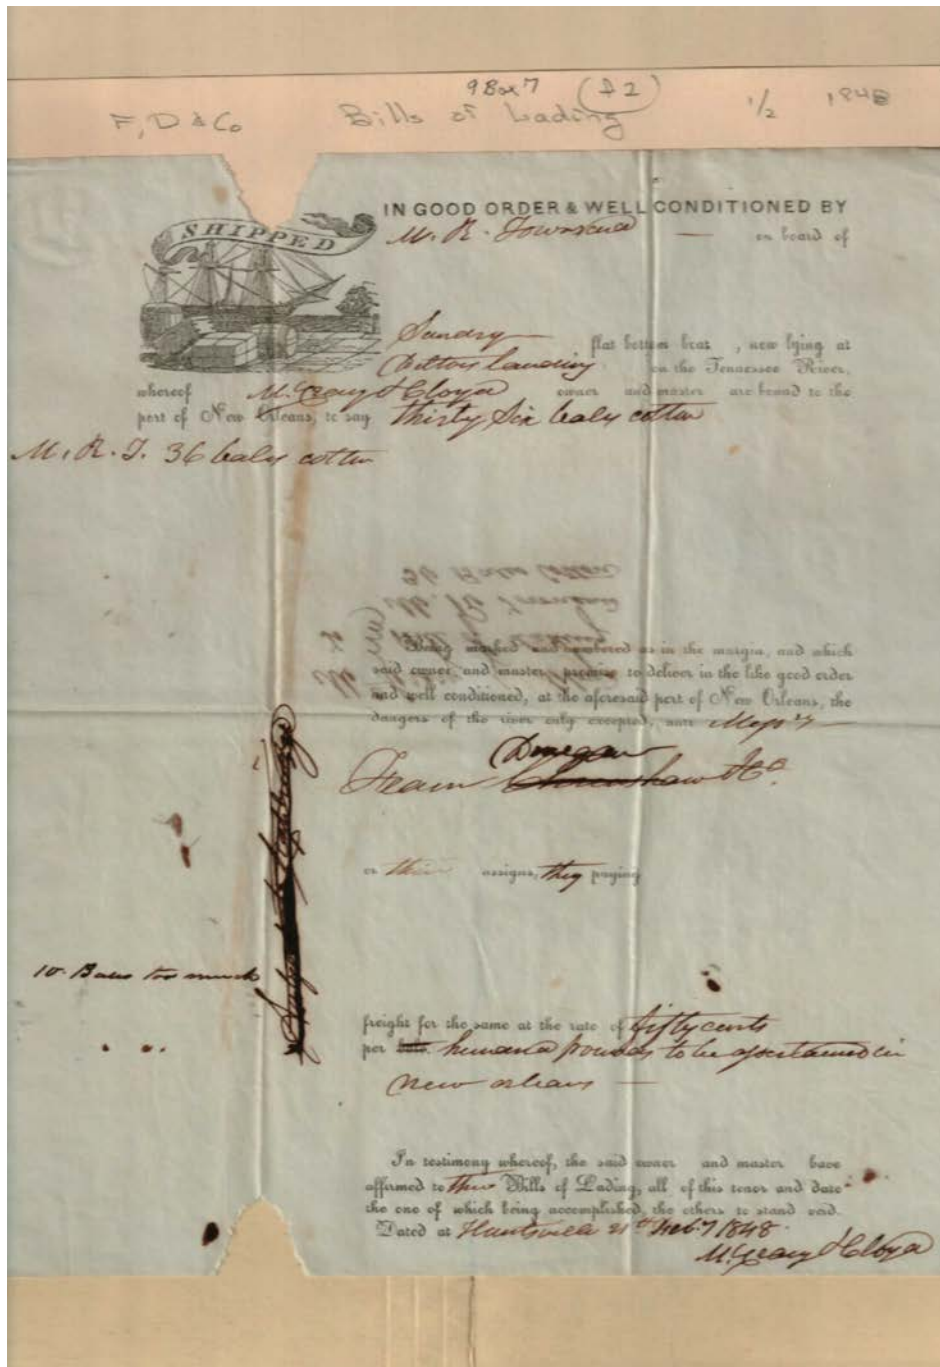 9 Box 7 (A2)
F, D & Co Bills of Lading 1/2 1848
SHIPPED
IN GOOD ORDER & WELL CONDITIONED BY
M. R. Townsend — on board of
Sundry flat bottom boat, now lying at
Landing, on the Tennessee River,
whereof & Cloyd owner and master are bound to the
port of New Orleans, to say thirty six bales cotton
M. R. T. 36 bales cotton
36 Bales Cotton
M. R. Townsend
Bill of Lading
Being marked and numbered as in the margin, and which
said owner and master promise to deliver in the like good order
and well conditioned, at the aforesaid port of New Orleans, the
dangers of the river only excepted, unto Messrs
Donegan
Fearn & Co.
or their assigns, they paying
10 Bales too much
freight for the same at the rate of fifty cents
per hundred pounds to be ascertained in
New orleans —
In testimony whereof, the said owner and master have
affirmed to three Bills of Lading, all of this tenor and date
the one of which being accomplished, the others to stand void.
Dated at Huntsville 21st Feby 1848.
& Cloyd